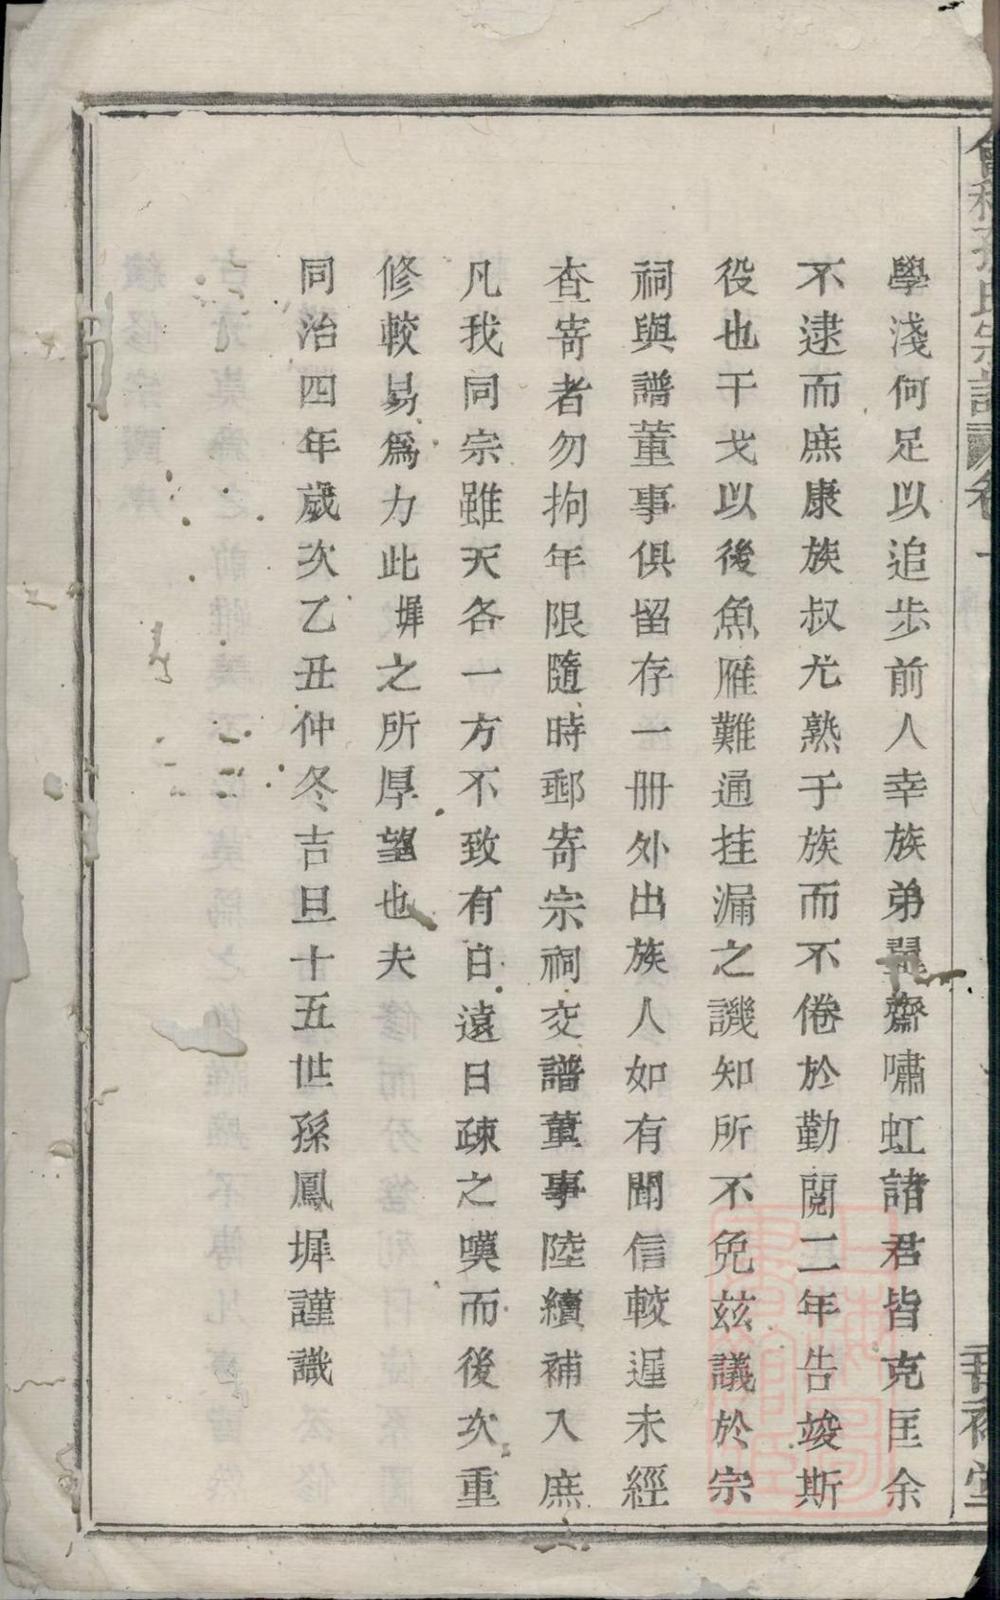 學淺何足以追步前人幸族弟巽齋嘯虹諸君皆克匡余
不逮而庶康族叔尤熟于族而不倦於勤閲二年告竣斯
役也干戈以後魚雁難通挂漏之譏知所不免茲議於宗
祠與譜董事俱留存一册外出族人如有聞信較遲未經
査寄者勿拘年限隨時郵寄宗祠交譜董事陸續補入庶
凡我同宗雖天各一方不致有日遠日疎之嘆而後次重
修較易爲力此墀之所厚望也夫
同治四年歲次乙丑仲冬吉旦十五世孫鳳墀謹識